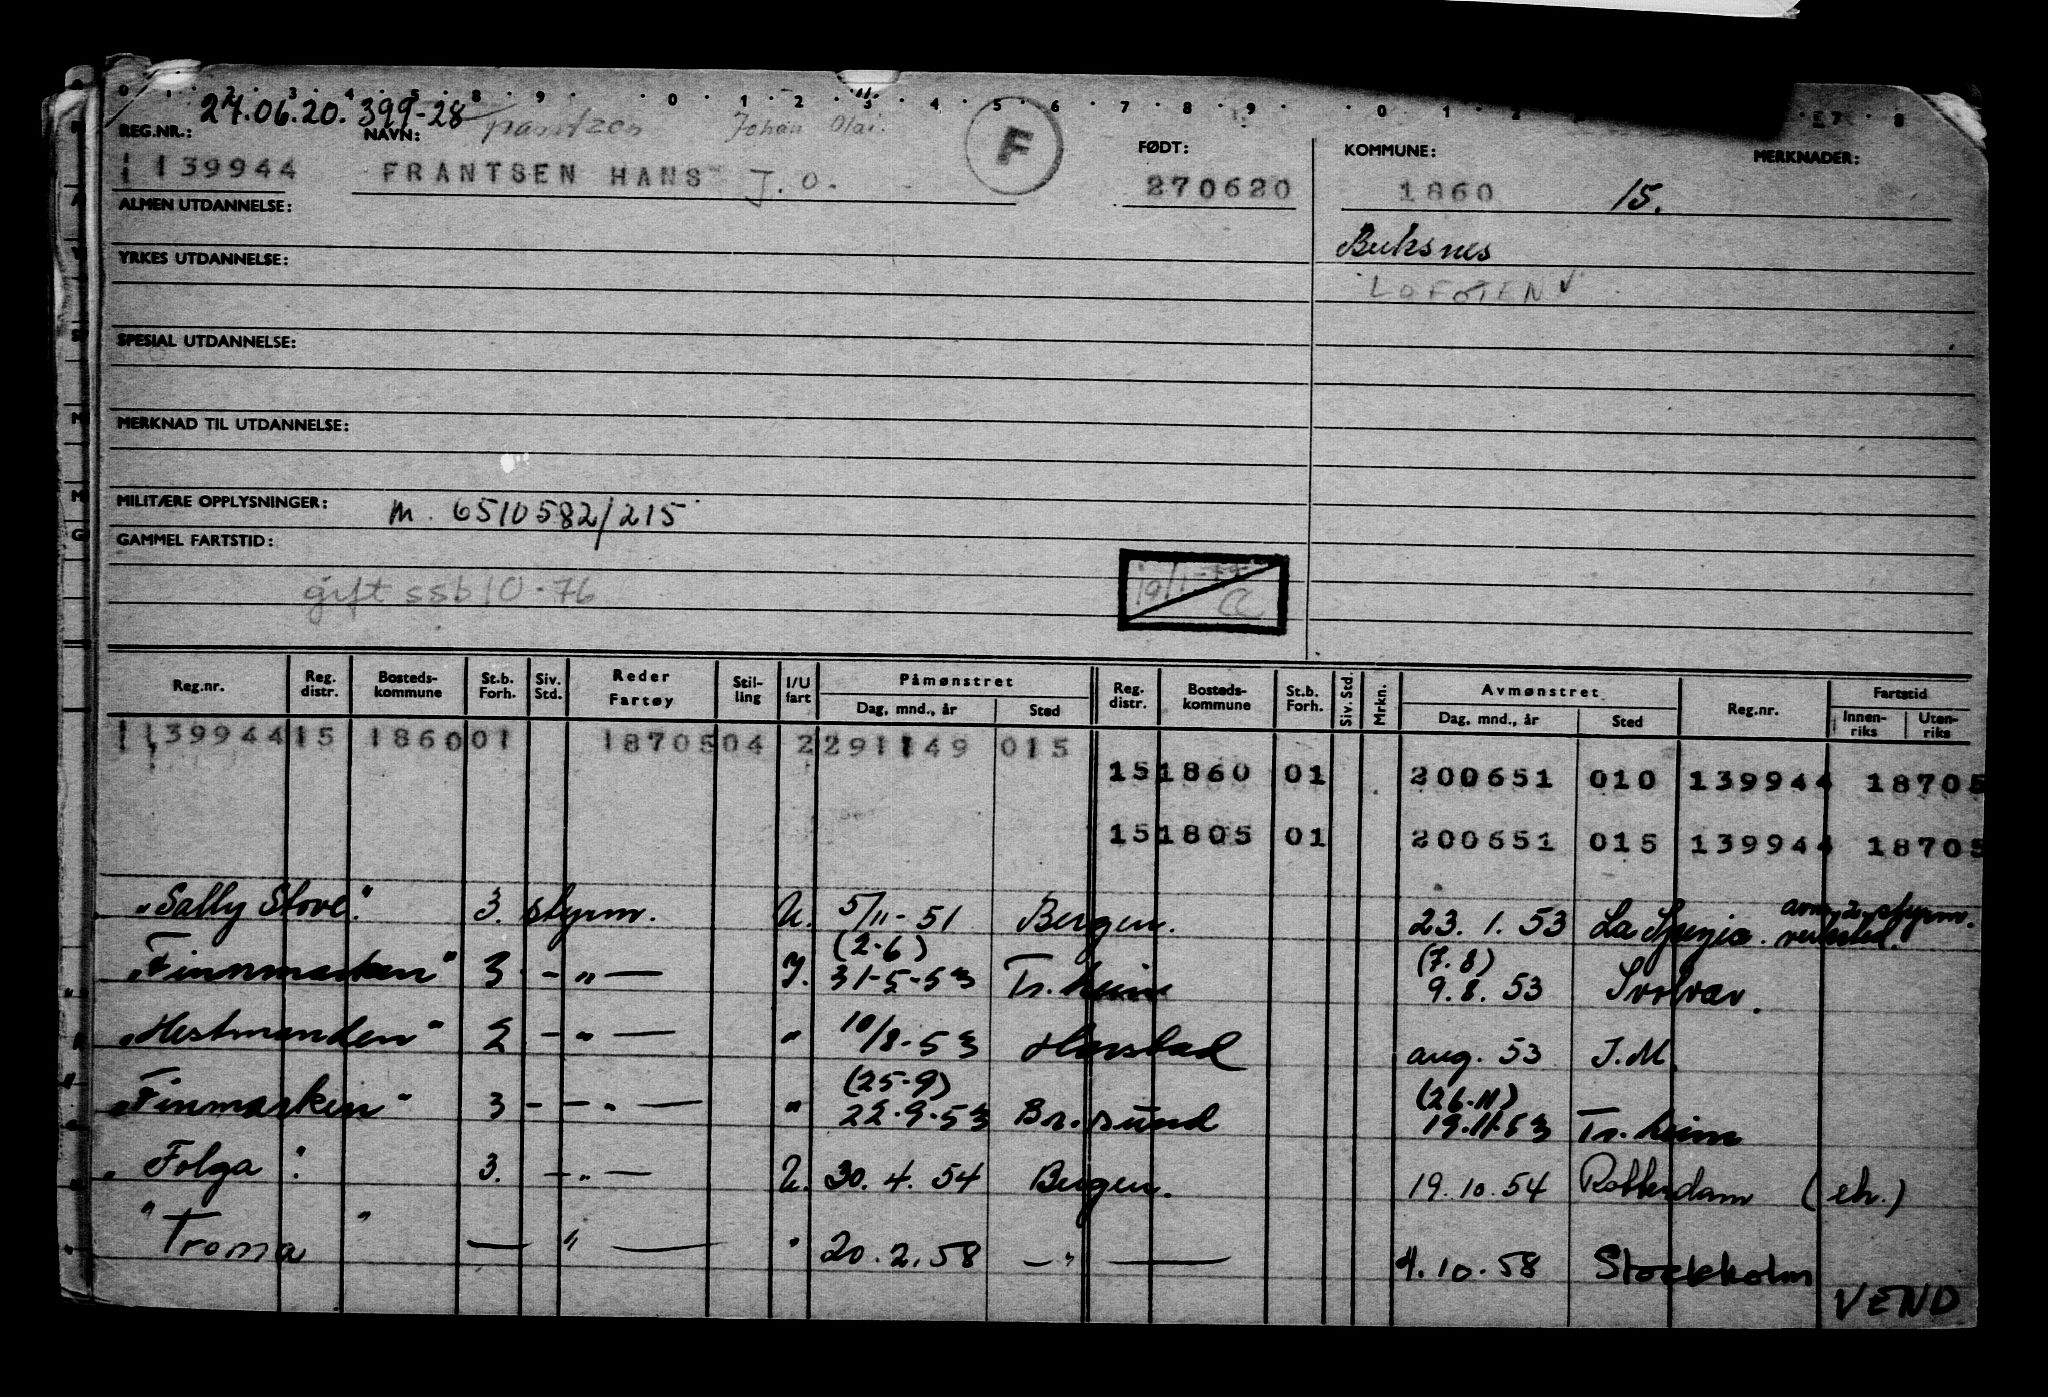 27.06.20. 399-28
REG.NR.: NAVN: Frantzen Johan Olai. F FØDT: KOMMUNE: MERKNADER:
139944 FRANTSEN HANS J. O. 270620 1860 15.
ALMEN UTDANNELSE:
Buksnes
YRKES UTDANNELSE:
LOFOTEN
SPESIAL UTDANNELSE:
MERKNAD TIL UTDANNELSE:
MILITÆRE OPPLYSNINGER: M. 6510582/215
GAMMEL FARTSTID:
gift ssb 10-76
Reg.nr. Reg. distr. Bosteds- kommune St.b. Forh. Siv. Std. Reder Fartøy Stil- ling I/U fart Påmønstret Dag, mnd., år Sted Reg. distr. Bosteds- kommune St.b. Forh. Siv. Std. Mrkn. Avmønstret Dag, mnd., år Sted Reg.nr. Fartstid Innen- riks Uten- riks
139944 15 1860 01 18705 04 2 291149 015
15 1860 01 200651 010 139944 18705
15 1805 01 200651 015 139944 18705
"Sally Stove". 3. styrm. U. 5/11-51 Bergen. 23. 1. 53 La Spezia.
(2-6) (7.8)
"Finnmarken" 3 - " - I. 31-5-53 Tr.heim 9.8. 53 Svolvær.
"Hestmanden" 2 - " - " 10/8-53 Harstad aug. 53 I.M.
(25-9) (26-11)
"Finmarken" 3 - - " - " 22-9-53 Br.sund 19.11.53 Tr.heim
"Folga". 3. - " - U. 30. 4. 54 Bergen. 19.10.54 Rotterdam (eh.)
"Troma" - " - " 20. 2. 58 - " - 4. 10. 58 Stockholm
VEND